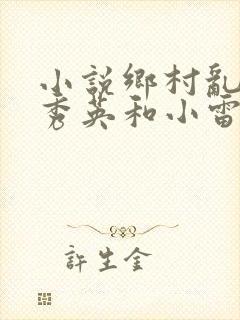 小説鄉村亂
秀英和小雷
許生金